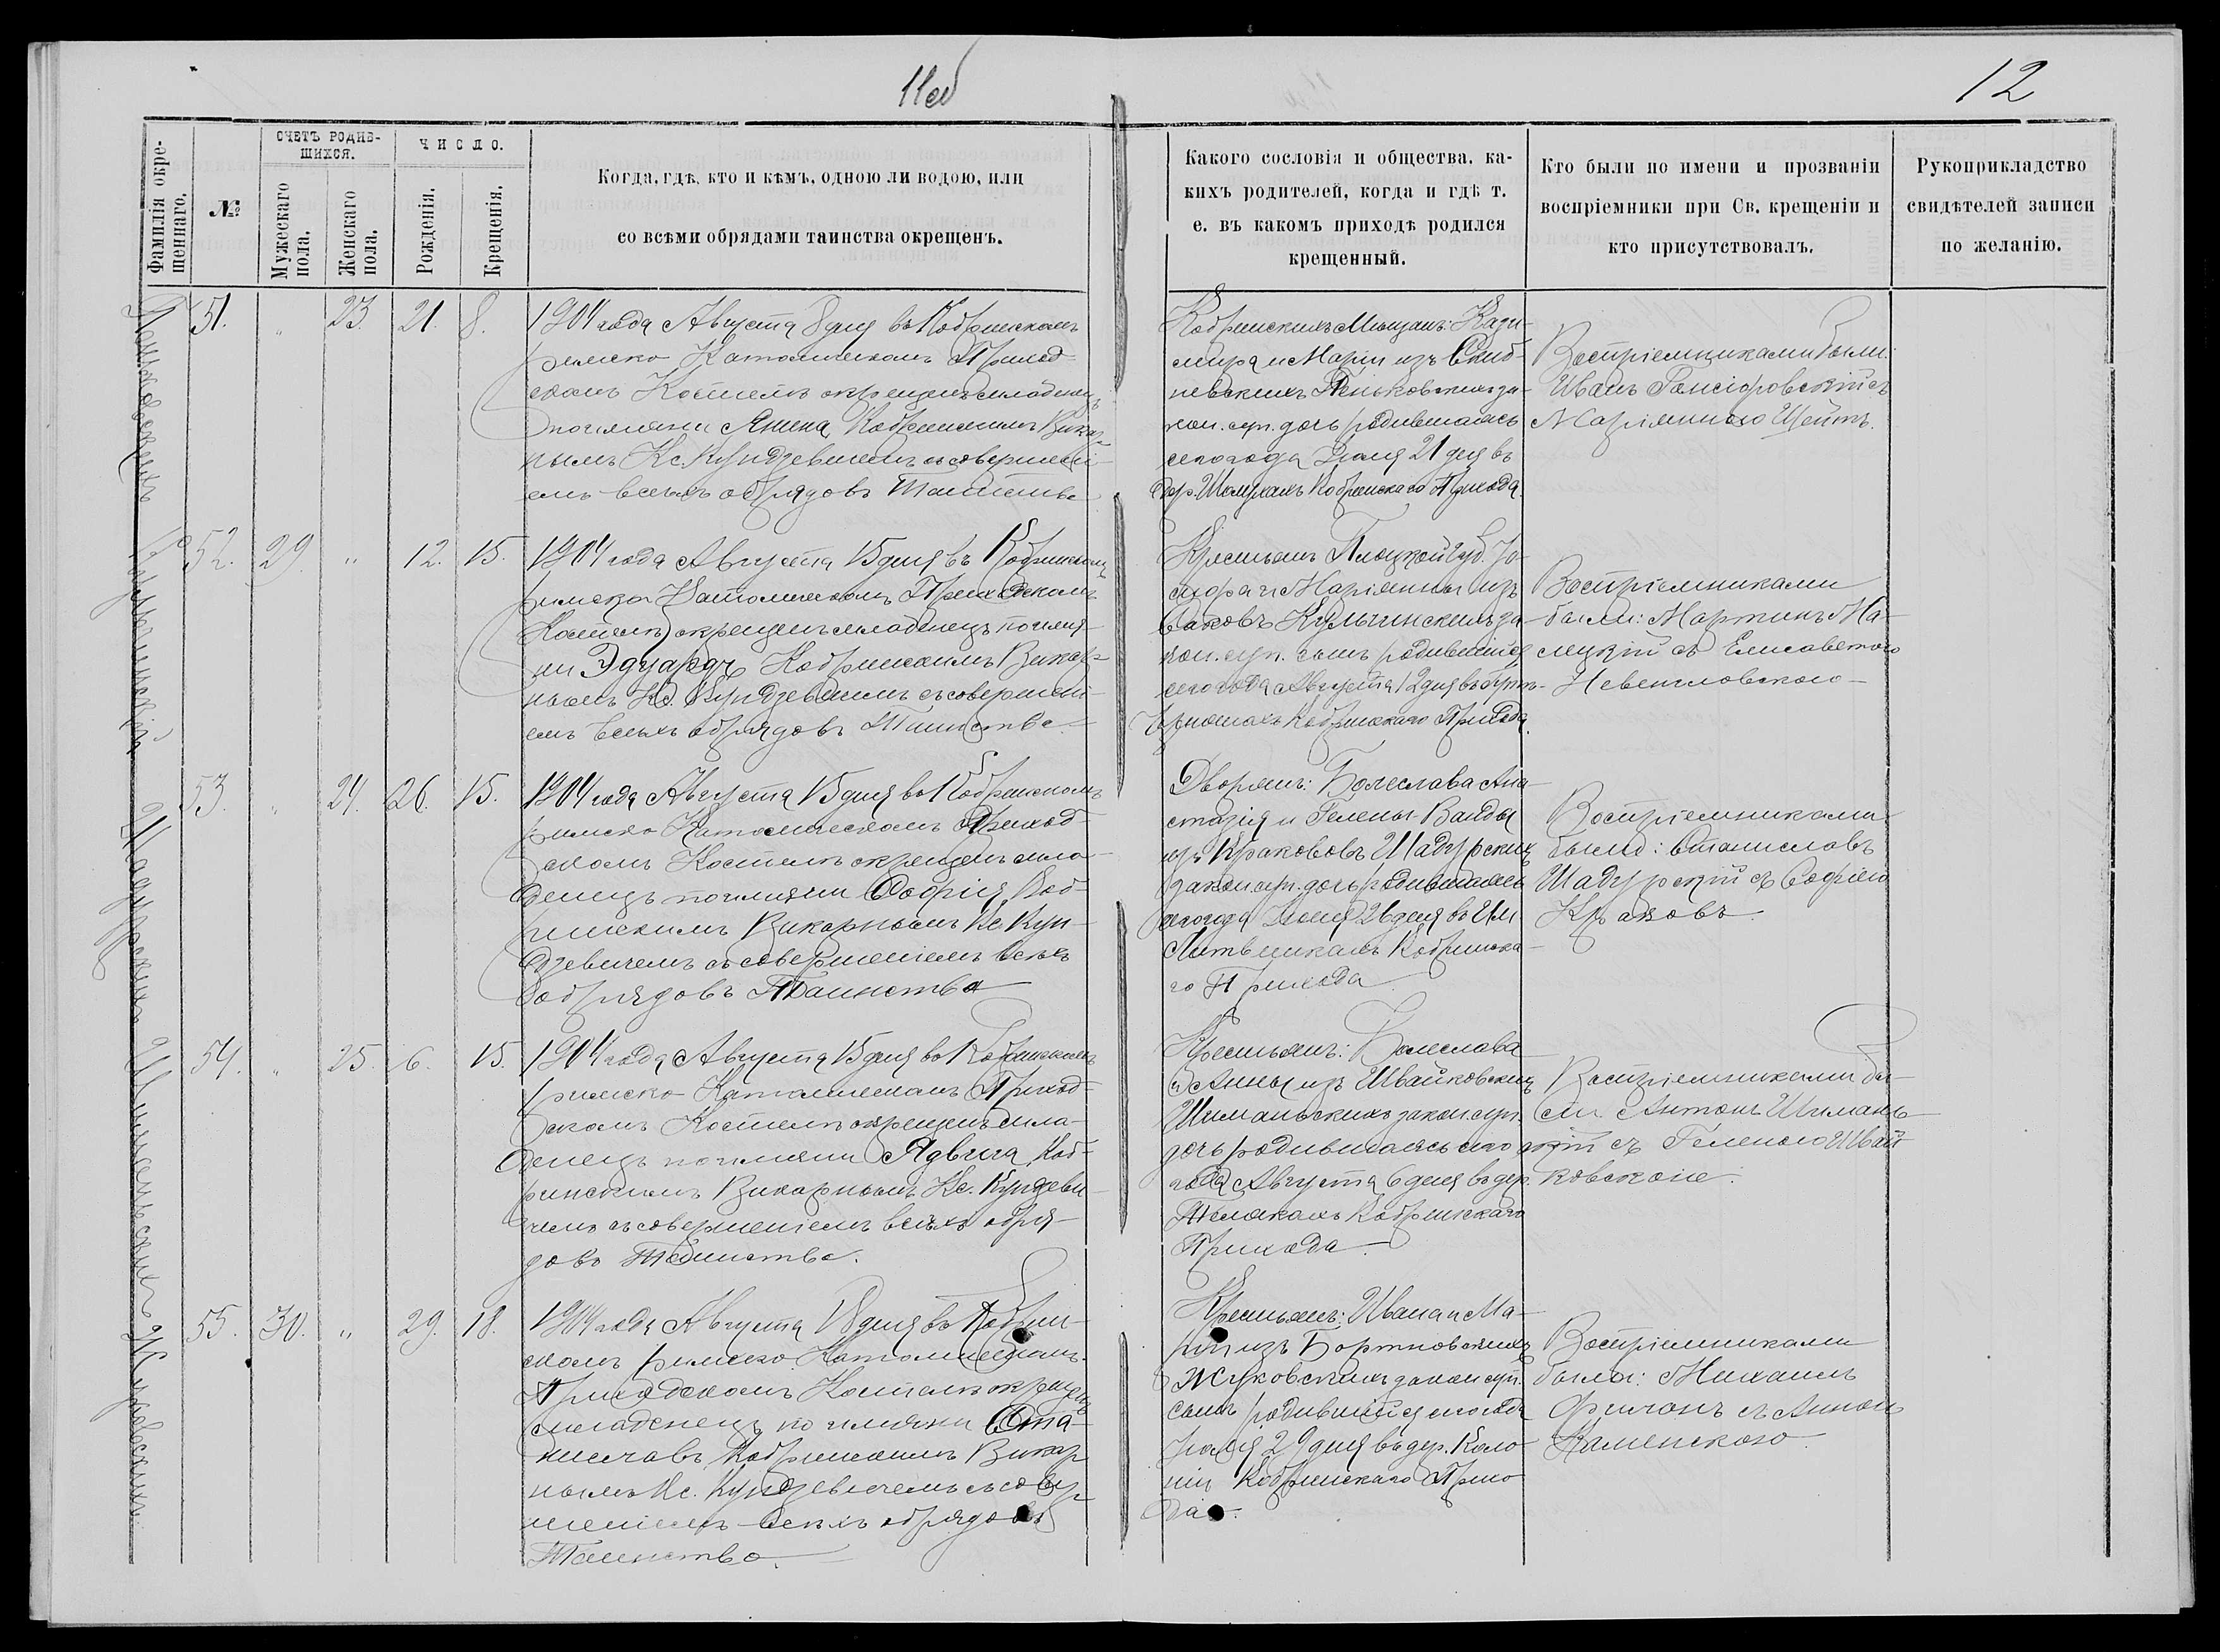 11об
12
Фамилія окре-
щеннаго.
№
СЧЕТЪ РОДИВ-
ШИХСЯ.
Мужескаго
пола.
Женскаго
пола.
ЧИСЛО.
Рожденія.
Крещенія.
Когда, гдѣ, кто и кѣмъ, одною ли водою, или
со всѣми обрядами таинства окрещенъ.
Какого сословія и общества, ка-
кихъ родителей, когда и гдѣ т.
е. въ какомъ приходѣ родился
крещенный.
Кто были по имени и прозванію
воспріемники при Св. крещеніи и
кто присутствовалъ.
Рукоприкладство
свидѣтелей записи
по желанію.
51. " 23. 21. 8.
1904 года Августа 8 дня въ Кобринскомъ
римско Католическомъ Приход-
скомъ Костелѣ окрещенъ младенецъ
по имени Янина Кобринскимъ Викар-
нымъ Кс. Кундзевичемъ съ совершені-
емъ всѣхъ обрядовъ Таинства
Кобринскихъ Мѣщанъ: Кази-
мира и Маріи изъ Скиб-
невскихъ Пеньковскихъ за-
кон. суп. дочь родившаяся
сего года Іюля 21 дня въ
дер. Кобринскаго Прихода.
Воспріемниками были:
Иванъ съ
Маріянною
52. 29. " 12. 15.
1904 года Августа 15 дня въ Кобринскомъ
римско Католическомъ Приходскомъ
Костелѣ окрещенъ младенецъ по име-
ни Эдуардъ Кобринскимъ Викар-
нымъ Кс. Кундзевичемъ съ совершені-
емъ всѣхъ обрядовъ Таинства
Крестьянъ Плоцкой Губ. Іо-
сифа и Маріянны изъ
Саковъ Кульчинскихъ за-
кон. суп. сынъ родившійся
сего года Августа 12 дня въ
Кобринскаго Прихода.
Воспріемниками
были: Мартинъ Ма-
съ Елисаветою
53. " 24. 26. 15.
1904 года Августа 15 дня во Кобринскомъ
римско Католическомъ Приход-
скомъ Костелѣ окрещенъ мла-
денецъ по имени Софія Коб-
ринскимъ Викарнымъ Кс. Кун-
дзевичемъ съ совершеніемъ всѣхъ
обрядовъ Таинства
Дворянъ: Болеслава Ана-
стазія и Гелены-Ванды
изъ Кракововъ Шадурскихъ
закон. суп. дочь родившаяся
сего года 26 дня въ им.
Литвинкахъ Кобринска-
го Прихода.
Воспріемниками
были: Станиславъ
Шадурскій съ Софіею
Краковъ
54. " 25. 6. 15.
1904 года Августа 15 дня во Кобринскомъ
римско Католическомъ Приход-
скомъ Костелѣ окрещенъ мла-
денецъ по имени Ядвига Коб-
ринскимъ Викарнымъ Кс. Кундзеви-
чемъ съ совершеніемъ всѣхъ обря-
довъ Таинства.
Крестьянъ: Болеслава
и Анны изъ Швайковскихъ
Шиманьскихъ закон. суп.
дочь родившаяся сего
года Августа 6 дня въ дер.
Кобринскаго
Прихода.
Воспріемниками бы-
ли Антонъ Шимань-
скій съ Геленою Швай-
ковскою.
55. 30. " 29. 18.
1904 года Августа 18 дня въ Кобрин-
скомъ римско Католическомъ
Приходскомъ Костелѣ окрещенъ
младенецъ по имени Ста-
ниславъ Кобринскимъ Викар-
нымъ Кс. Кундзевичемъ съ совер-
шеніемъ всѣхъ обрядовъ
Таинства.
Крестьянъ: Ивана и Ма-
ріи изъ Бортновскихъ
Жуковскихъ закон. суп.
сынъ родившійся сего года
Іюля 29 дня въ дер. Коло-
ніи Кобринскаго Прихо-
да.
Воспріемниками
были: Михаилъ
съ Анною
Каменскою.